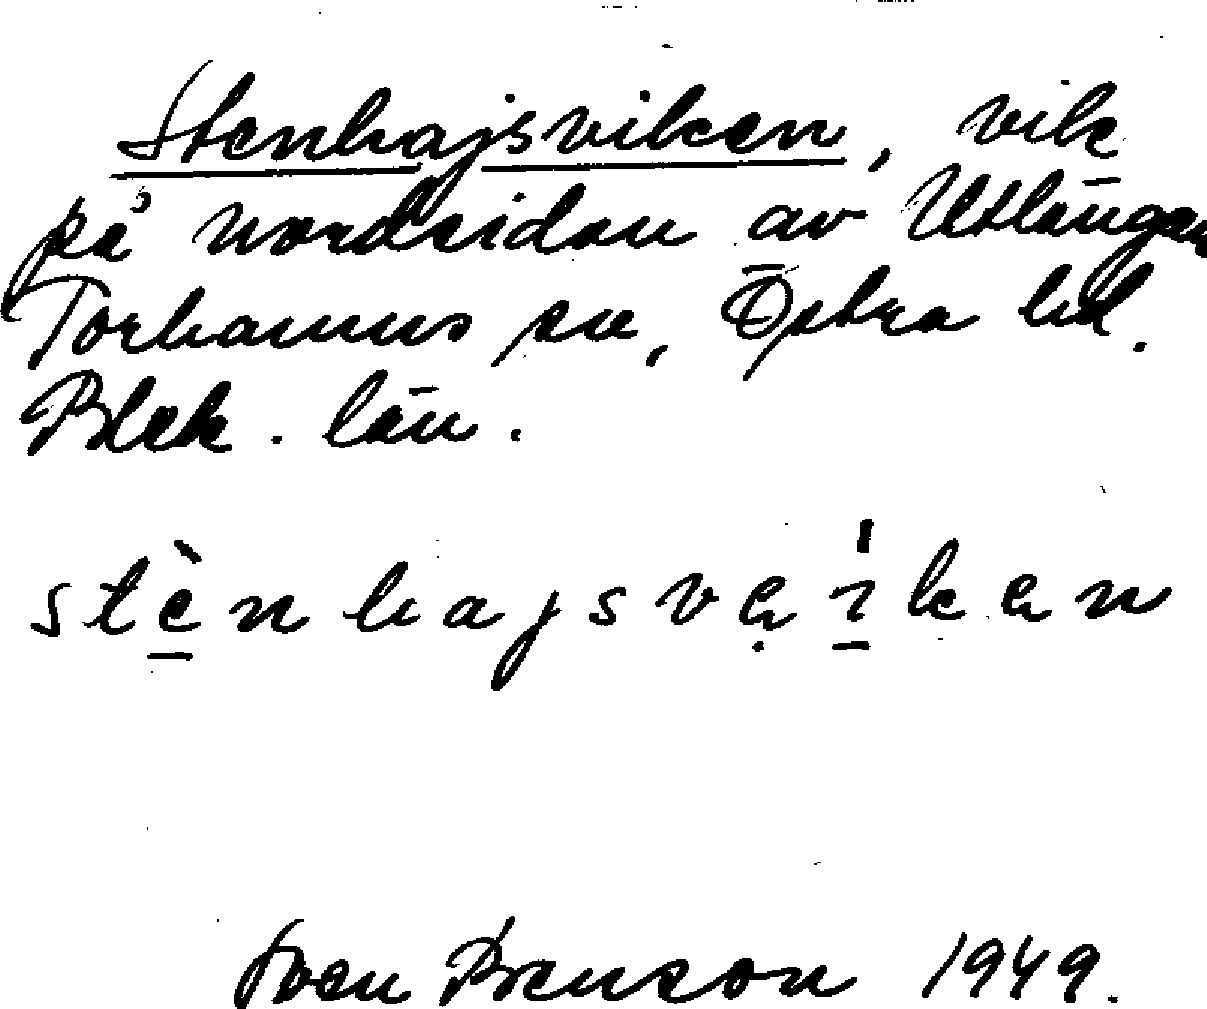 Stenhajsviken, vik
på nordsidan av Utlängan
Torhamns sn, Östra hd.
Blek. län.
stènhajsvəíkən
Sven Benson 1949.